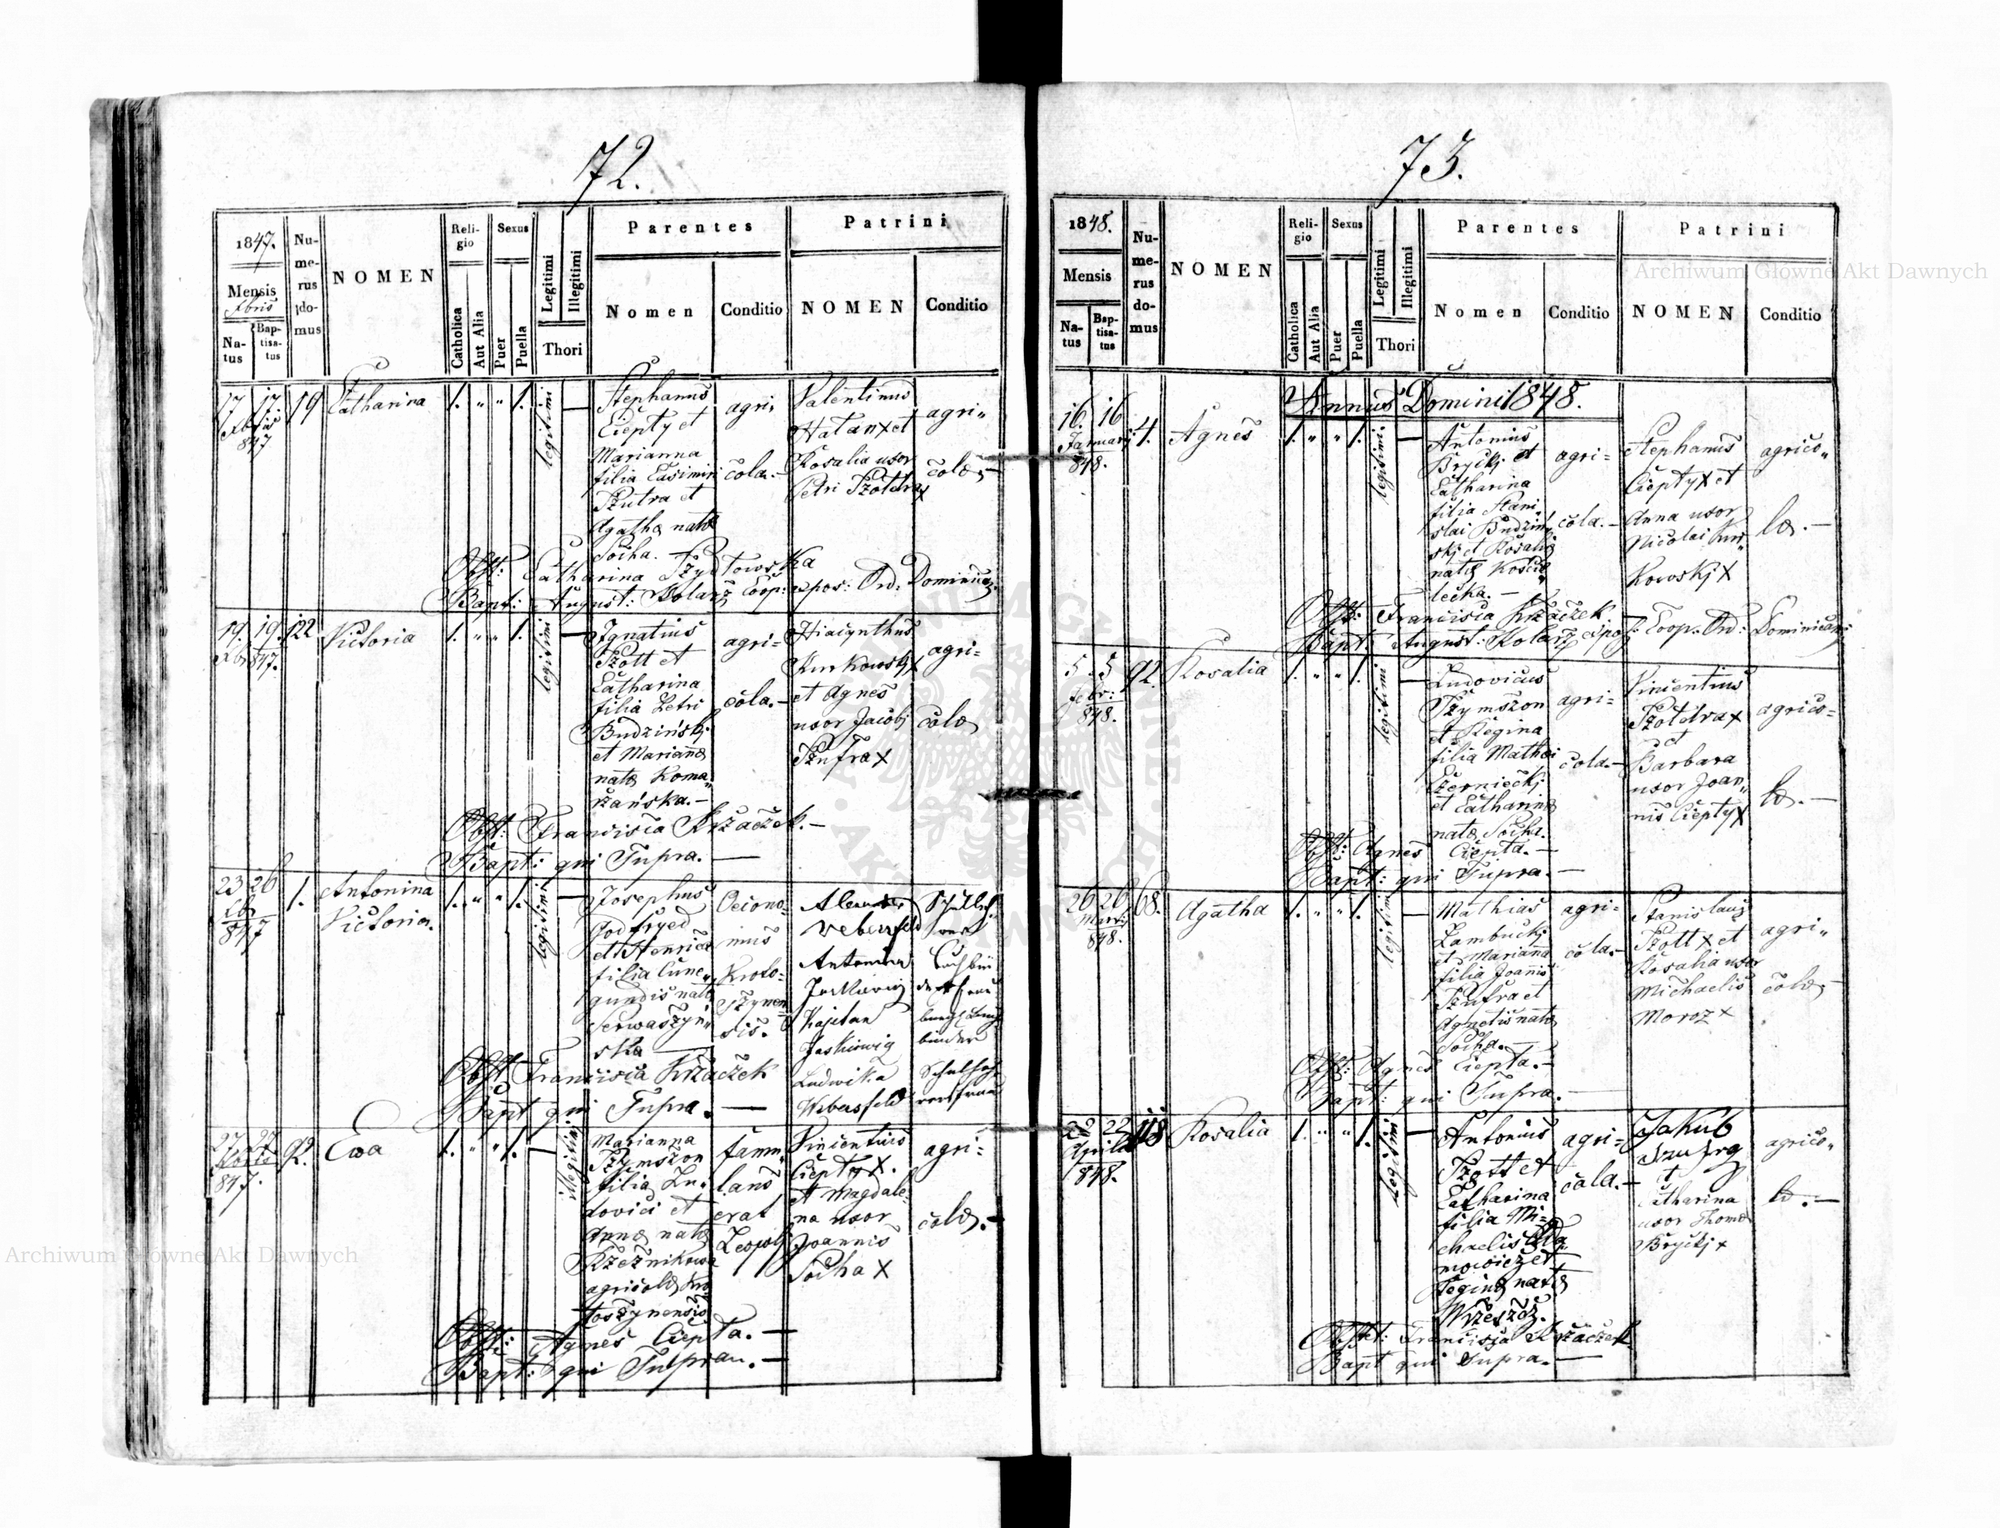 72.
1847.
Mensis
Xbris
Na-
tus
Bap-
tisa-
tus
Nu-
me-
rus
do-
mus
NOMEN
Reli-
gio
Catholica
Aut Alia
Sexus
Puer
Puella
Legitimi
Illegitimi
Thori
Parentes
Nomen
Conditio
Patrini
NOMEN
Conditio
17 17
847
19
Catharina
1. " " 1.
legitimi
Stephanus
Ciepty et
Marianna
filia Casimiri
Szutra et
Agathæ natæ
Socha.
agri-
cola.-
Valentinus
Hatanx et
Rosalia uxor
Petri Szotdra x
agri-
colæ
Obst: Catharina Szydtowska
Bapt: August: Kolarz Coop: expos: Ord: Dominic:
19. 19.
847.
122
Victoria
1. " " 1.
legitimi
Ignatius
Szott et
Catharina
filia Petri
Budziński
et Mariannæ
natæ Roma-
żańska.-
agri-
cola.-
Hiacynthus
Kurkowski x
et Agnes
uxor Jacobi
Szufra x
agri-
colæ
Obst: Francisca Krzaczek.-
Bapt: qui Supra.-
23 26
847
1.
Antonina
Victoria.
1. " " 1.
legitimi
Josephus
Godfryed
et Henrica
filia Cune-
gundis natæ
Serwaszyń-
ska
Oecono-
mus
Kroto-
szynen
sis.
Weberfeld
Antonina
Kajetan
Ludwika
Webersfeld
binder
Obst: Francisca Krzaczek
Bapt qui Supra.-
27 27
847.
92.
Ewa
1. " " 1.
illegitimi
Marianna
Szymszon
filia Lu-
dovici et
Annæ natæ
Rzeznikowa
agricolæ Kro
toszynensis
famu-
lans
erat
Leopoli
Vincentius
Ciepty x.
et Magdale-
na uxor
Joannis
Socha x
agri-
colæ.-
Obst: Agnes Ciepta.-
Bapt: qui Supra.-
73.
1848.
Mensis
Na-
tus
Bap-
tisa-
tus
Nu-
me-
rus
do-
mus
NOMEN
Reli-
gio
Catholica
Aut Alia
Sexus
Puer
Puella
Legitimi
Illegitimi
Thori
Parentes
Nomen
Conditio
Patrini
NOMEN
Conditio
Annus Domini 1848.
16. 16
January
848.
4.
Agnes
1. " " 1.
legitimi.
Antonius
Brycki et
Catharina
filia Stani-
slai Budziń-
ski et Rosaliæ
natæ Kościo-
lecka.-
agri-
cola.-
Stephanus
Ciepty x et
Anna uxor
Nicolai Kur-
kowski x
agrico-
læ.-
Obst: Francisca Krzaczek
Bapt: August: Kolarz Expos: Coop. Ord: Dominicani
5. 5
febr:
848.
92.
Rosalia
1. " " 1.
legitimi
Ludovicus
Szymszon
et Regina
filia Mathæi
Czerniecki
et Catharinæ
natæ Socha.
agri-
cola.-
Vincentius
Szotdra x
et
Barbara
uxor Joan-
nis Ciepty x
agrico-
læ.-
Obst: Agnes Ciepta.-
Bapt: qui Supra.-
26 26
Marti
848.
68.
Agatha
1. " " 1.
legitimi
Mathias
Zambucki
et Marianna
filia Joannis
Szufra et
Agnetis natæ
Socha.-
agri-
cola.-
Stanislaus
Szott x et
Rosalia uxor
Michaelis
Moroz x
agri-
colæ.-
Obst: Agnes Ciepta.-
Bapt: qui Supra.-
22 22
Aprilis
848.
118
Rosalia
1. " " 1.
legitimi
Antonius
Szott et
Catharina
filia Mi-
chaelis Ada-
mowicz et
Reginæ natæ
Wrzeszcz.
agri-
cola.-
Jakub
Szufra
et
Catharina
uxor Thomæ
Brycki x
agrico-
læ.-
Obstet: Francisca Krzaczek
Bapt qui Supra.-
Archiwum Główne Akt Dawnych
Archiwum Główne Akt Dawnych